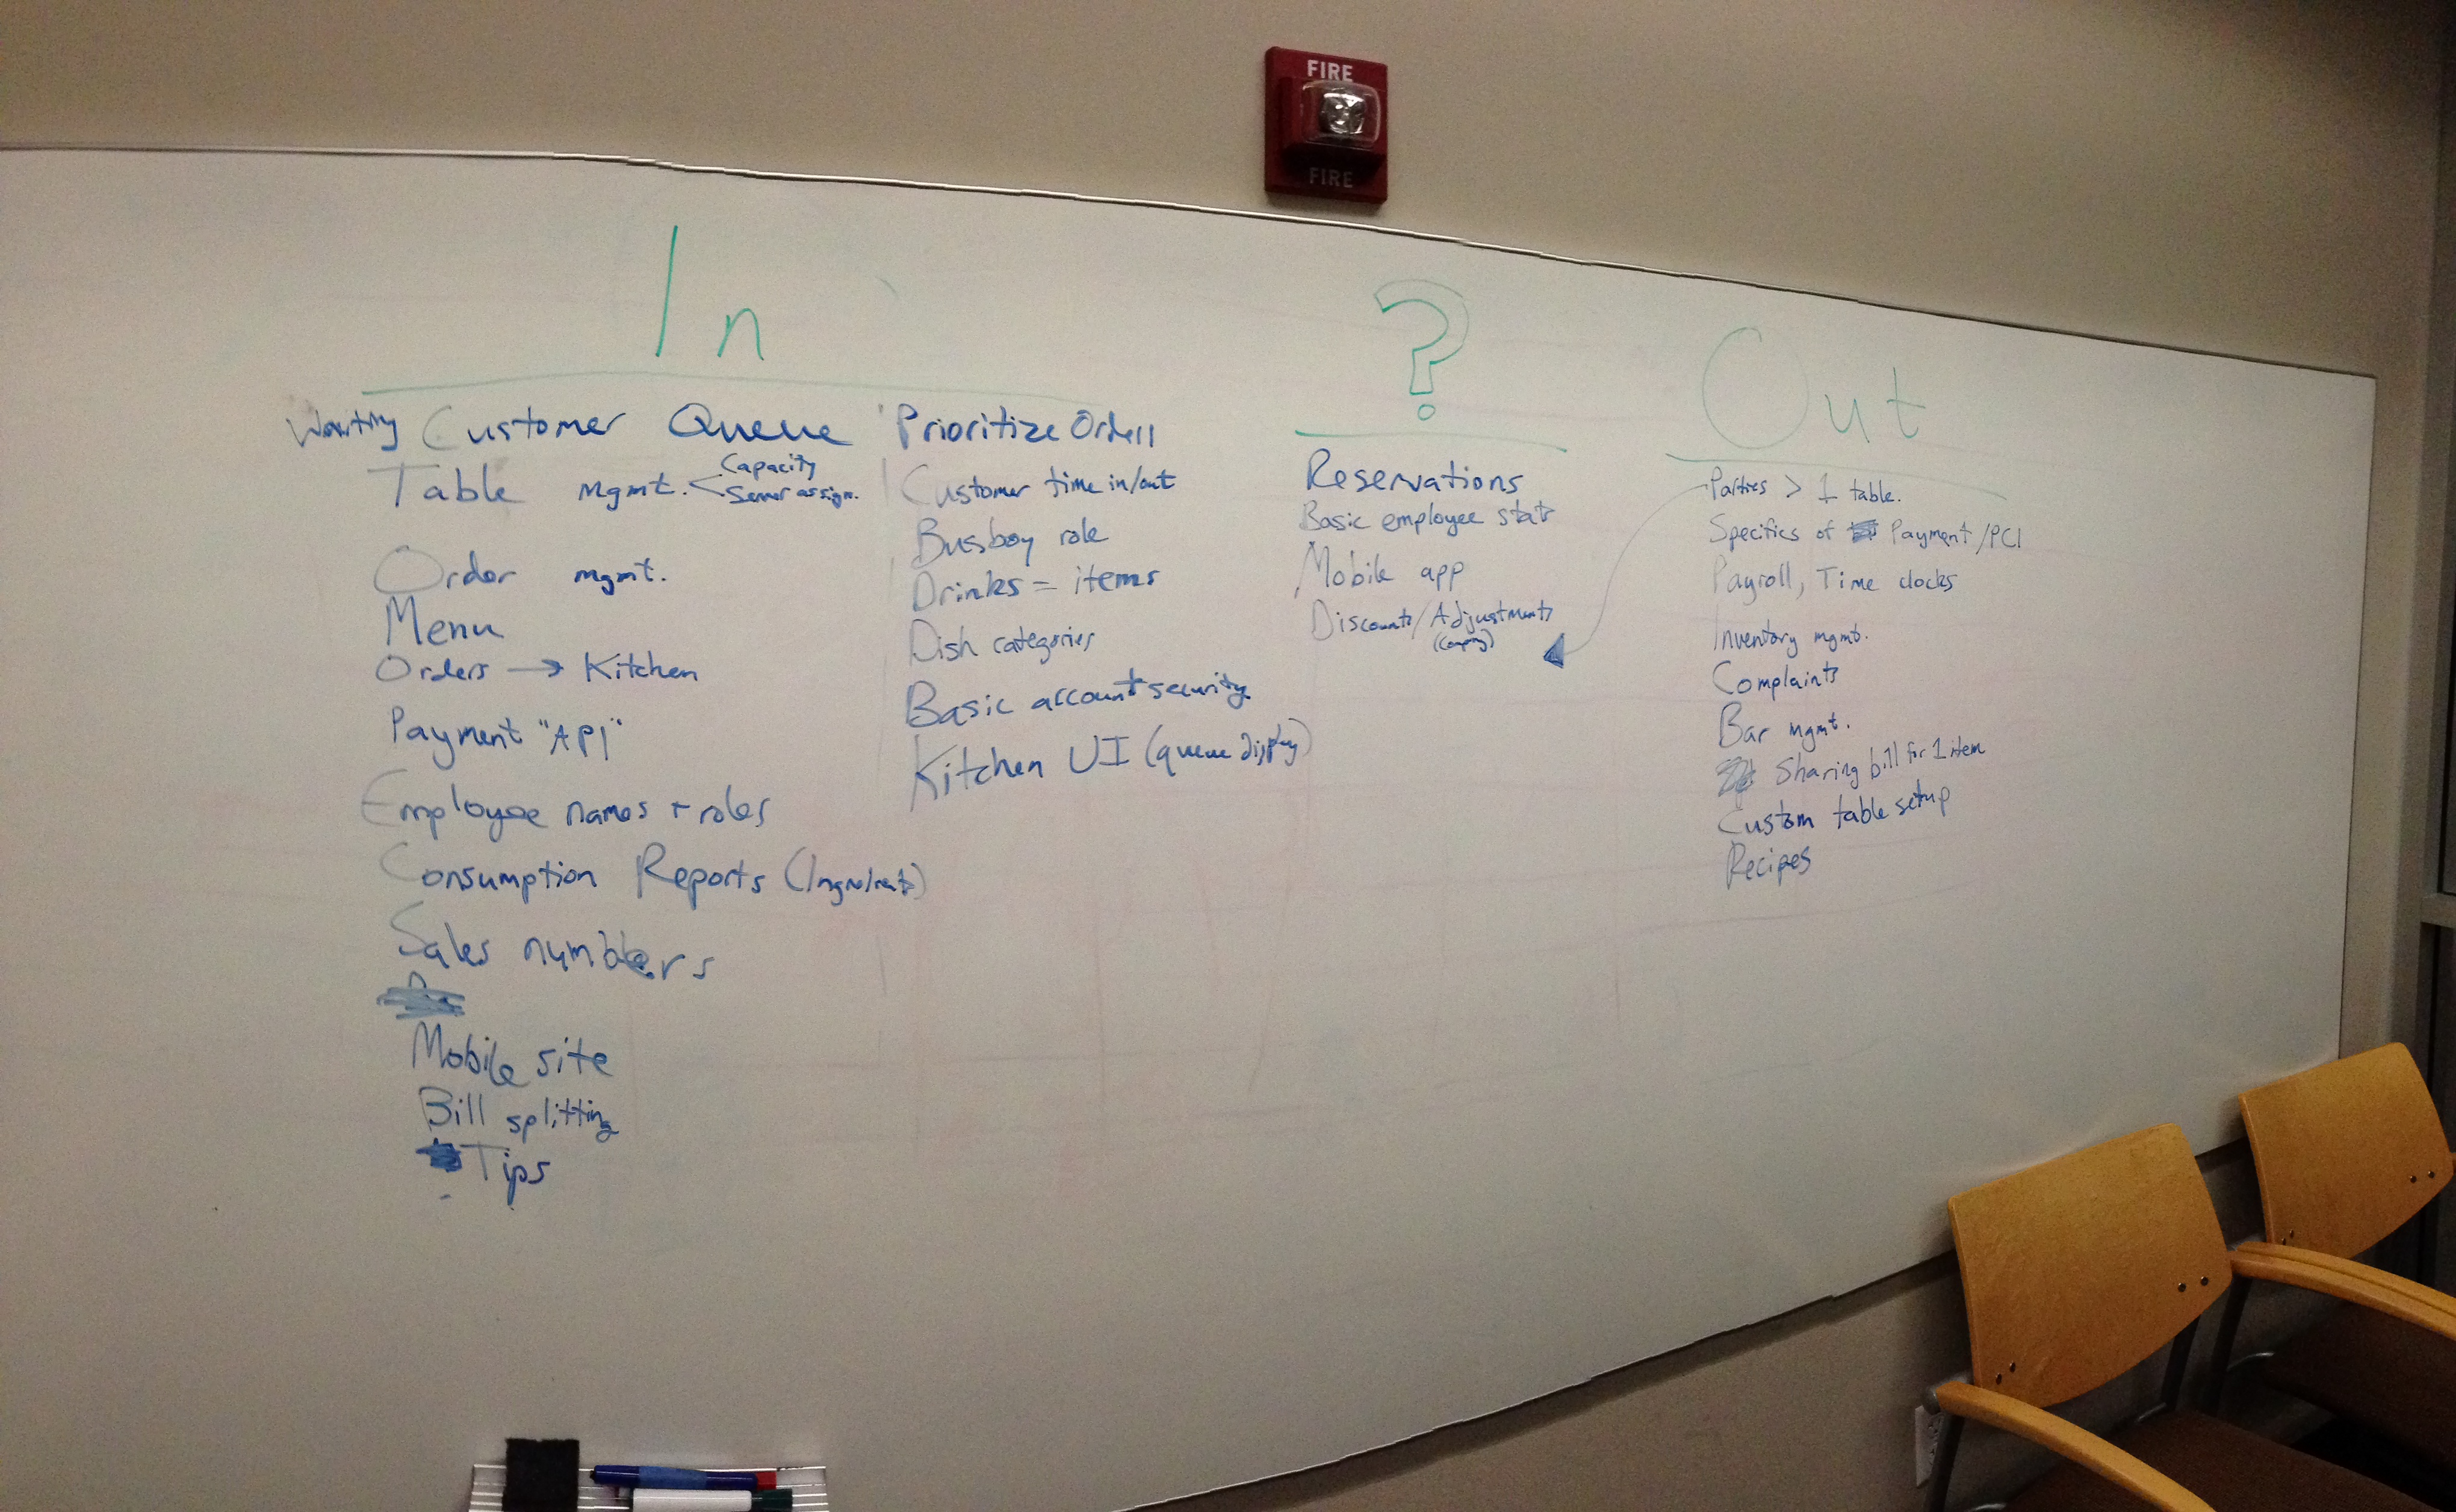 FIRE
FIRE
In
Waiting Customer Queue
Table mgmt. < Capacity
Server assign.
Order mgmt.
Menu
Orders → Kitchen
Payment "API"
Employee names + roles
Consumption Reports (Ingredients)
Sales numbers
Mobile site
Bill splitting
Tips
Prioritize Orders
Customer time in/out
Busboy role
Drinks = items
Dish categories
Basic account security
Kitchen UI (queue display)
?
Reservations
Basic employee stats
Mobile app
Discounts/Adjustments
Out
Parties > 1 table.
Specifics of Payment/PCI
Payroll, Time clocks
Inventory mgmt.
Complaints
Bar mgmt.
Sharing bill for 1 item
Custom table setup
Recipes